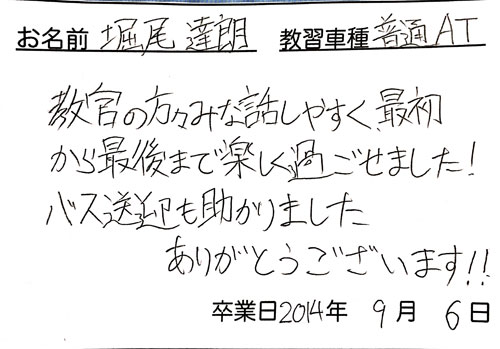 お名前 堀尾 達朗 教習車種 普通AT
教官の方々みな話しやすく、最初
から最後まで楽しく過ごせました!
バス送迎も助かりました
ありがとうございます!!
卒業日2014年 9月 6日